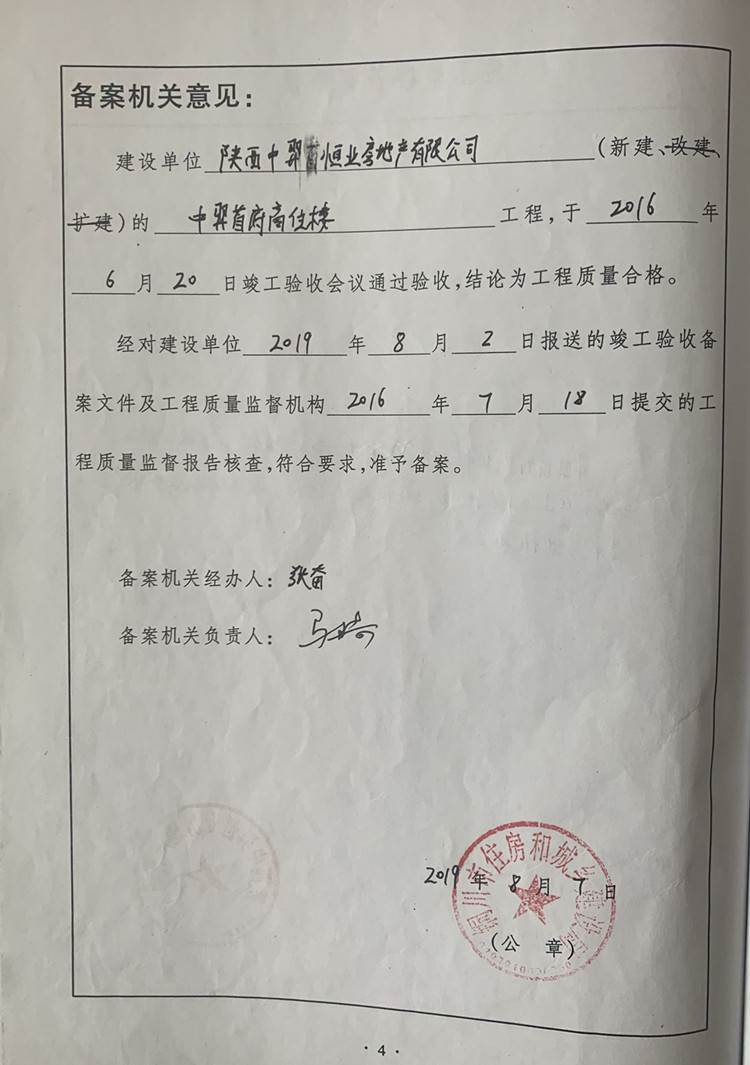 备案机关意见：
建设单位 陕西中羿恒业房地产有限公司 （新建、改建、
扩建）的 中羿首府商住楼 工程，于 2016 年
6 月 20 日竣工验收会议通过验收，结论为工程质量合格。
经对建设单位 2019 年 8 月 2 日报送的竣工验收备
案文件及工程质量监督机构 2016 年 7 月 18 日提交的工
程质量监督报告核查，符合要求，准予备案。
备案机关经办人：张
备案机关负责人：马
铜川市住房和城乡建设局
2019 年 8 月 7 日
（公 章）
· 4 ·